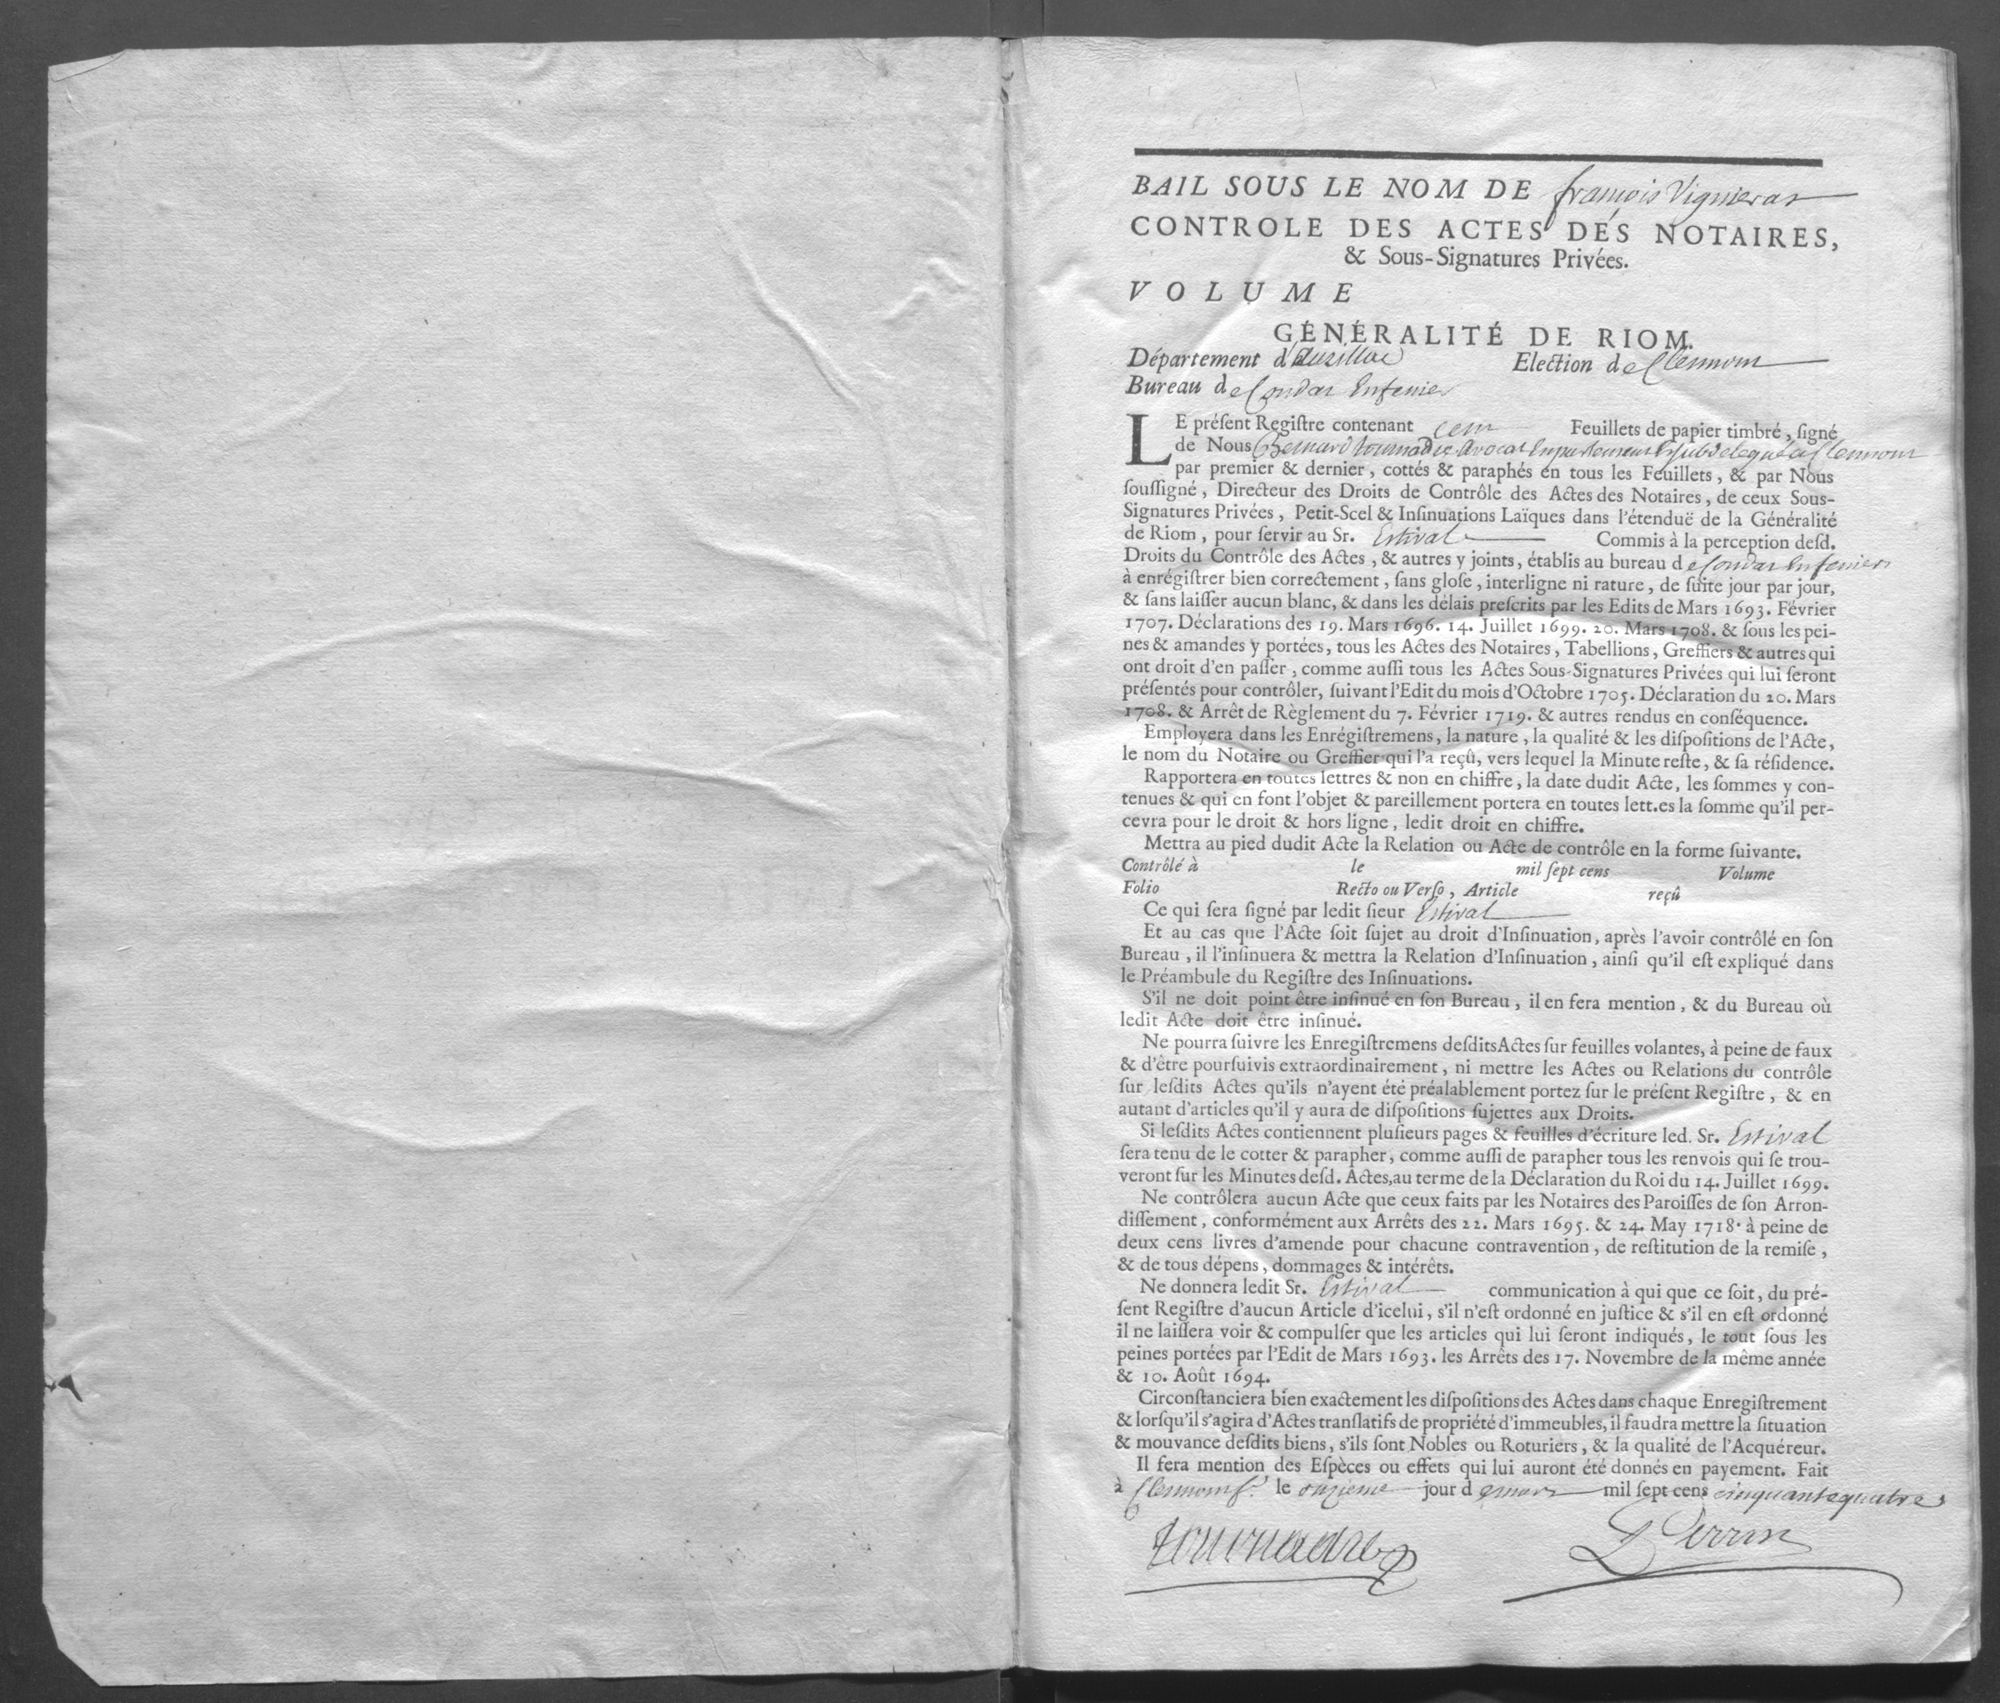 BAIL SOUS LE NOM DE françois Vigneras
CONTROLE DES ACTES DES NOTAIRES,
& Sous-Signatures Privées.
VOLUME
GÉNÉRALITÉ DE RIOM.
Département d'aurillac Election de Clermont
Bureau de Condat Enfenier
LE préſent Regiſtre contenant cent Feuillets de papier timbré, ſigné
de Nous Bernard tournadre avocat Enparlement Et subdelegué a Clermont
par premier & dernier, cottés & paraphés en tous les Feuillets, & par Nous
ſouſſigné, Directeur des Droits de Contrôle des Actes des Notaires, de ceux Sous-
Signatures Privées, Petit-Scel & Inſinuations Laïques dans l'étenduë de la Généralité
de Riom, pour ſervir au Sr. Estival Commis à la perception deſd.
Droits du Contrôle des Actes, & autres y joints, établis au bureau de Condat Enfenier
à enrégiſtrer bien correctement, ſans gloſe, interligne ni rature, de ſuite jour par jour,
& ſans laiſſer aucun blanc, & dans les délais preſcrits par les Edits de Mars 1693. Février
1707. Déclarations des 19. Mars 1696. 14. Juillet 1699. 20. Mars 1708. & ſous les pei-
nes & amandes y portées, tous les Actes des Notaires, Tabellions, Greffiers & autres qui
ont droit d'en paſſer, comme auſſi tous les Actes Sous-Signatures Privées qui lui ſeront
préſentés pour contrôler, ſuivant l'Edit du mois d'Octobre 1705. Déclaration du 20. Mars
1708. & Arrêt de Règlement du 7. Février 1719. & autres rendus en conſéquence.
Employera dans les Enrégiſtremens, la nature, la qualité & les diſpoſitions de l'Acte,
le nom du Notaire ou Greffier qui l'a reçû, vers lequel la Minute reſte, & ſa réſidence.
Rapportera en toutes lettres & non en chiffre, la date dudit Acte, les ſommes y con-
tenues & qui en font l'objet & pareillement portera en toutes lett.es la ſomme qu'il per-
cevra pour le droit & hors ligne, ledit droit en chiffre.
Mettra au pied dudit Acte la Relation ou Acte de contrôle en la forme ſuivante.
Contrôlé à le mil ſept cens Volume
Folio Recto ou Verſo, Article reçû
Ce qui ſera ſigné par ledit ſieur Estival
Et au cas que l'Acte ſoit ſujet au droit d'Inſinuation, après l'avoir contrôlé en ſon
Bureau, il l'inſinuera & mettra la Relation d'Inſinuation, ainſi qu'il eſt expliqué dans
le Préambule du Regiſtre des Inſinuations.
S'il ne doit point être inſinué en ſon Bureau, il en fera mention, & du Bureau où
ledit Acte doit être inſinué.
Ne pourra ſuivre les Enregiſtremens deſdits Actes ſur feuilles volantes, à peine de faux
& d'être pourſuivis extraordinairement, ni mettre les Actes ou Relations du contrôle
ſur leſdits Actes qu'ils n'ayent été préalablement portez ſur le préſent Regiſtre, & en
autant d'articles qu'il y aura de diſpoſitions ſujettes aux Droits.
Si leſdits Actes contiennent pluſieurs pages & feuilles d'écriture led. Sr. Estival
ſera tenu de le cotter & parapher, comme auſſi de parapher tous les renvois qui ſe trou-
veront ſur les Minutes deſd. Actes, au terme de la Déclaration du Roi du 14. Juillet 1699.
Ne contrôlera aucun Acte que ceux faits par les Notaires des Paroiſſes de ſon Arron-
diſſement, conformément aux Arrêts des 22. Mars 1695. & 24. May 1718. à peine de
deux cens livres d'amende pour chacune contravention, de reſtitution de la remiſe,
& de tous dépens, dommages & intérêts.
Ne donnera ledit Sr. Estival communication à qui que ce ſoit, du pré-
ſent Regiſtre d'aucun Article d'icelui, s'il n'eſt ordonné en juſtice & s'il en eſt ordonné
il ne laiſſera voir & compulſer que les articles qui lui ſeront indiqués, le tout ſous les
peines portées par l'Edit de Mars 1693. les Arrêts des 17. Novembre de la même année
& 10. Août 1694.
Circonſtanciera bien exactement les diſpoſitions des Actes dans chaque Enregiſtrement
& lorſqu'il s'agira d'Actes tranſlatifs de propriété d'immeubles, il faudra mettre la ſituation
& mouvance deſdits biens, s'ils ſont Nobles ou Roturiers, & la qualité de l'Acquéreur.
Il fera mention des Eſpèces ou effets qui lui auront été donnés en payement. Fait
à Clermontf. le onzieme jour de mars mil ſept cens cinquante quatre
tournadre Perrin